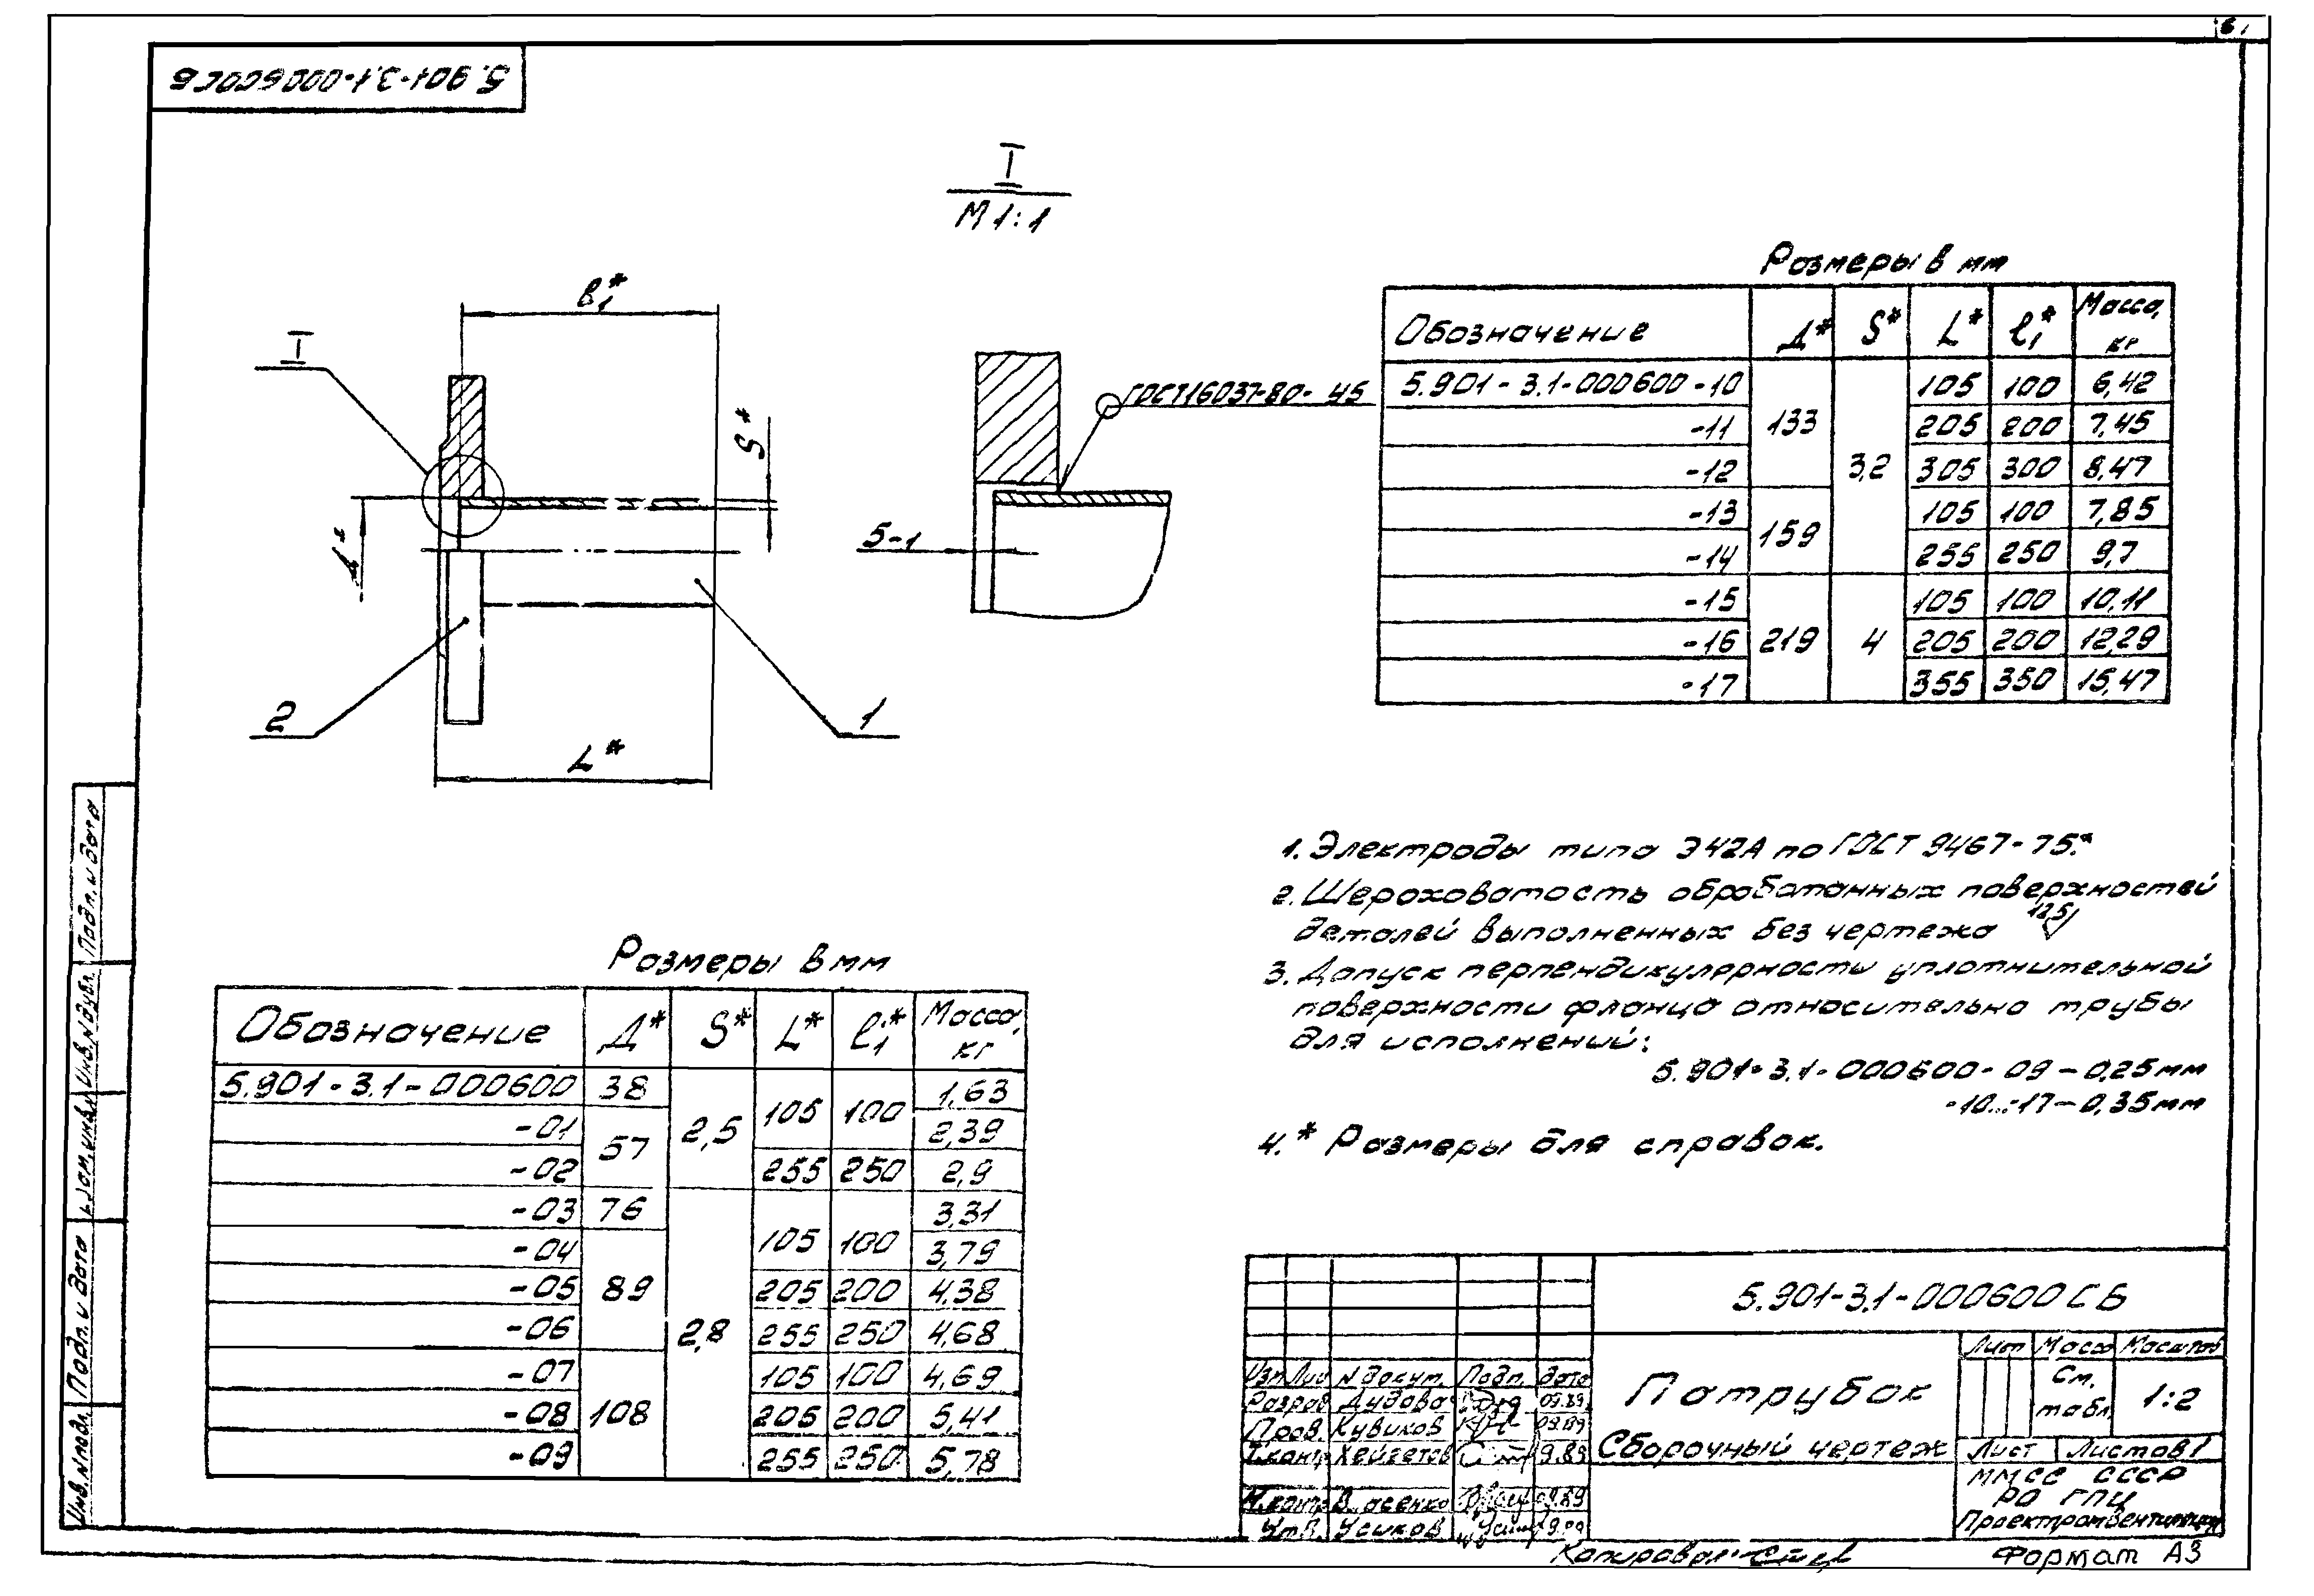 5.901-3.1-000600СБ
I
М 1:1
I
ℓ₁*
S*
Д*
L*
2
1
ГОСТ16037-80-У5
5-1
Размеры в мм
Обозначение Д* S* L* ℓ₁* Масса, кг
5.901-3.1-000600-10 133 3,2 105 100 6,42
-11 205 200 7,45
-12 305 300 8,47
-13 159 105 100 7,85
-14 255 250 9,7
-15 219 4 105 100 10,11
-16 205 200 12,29
-17 355 350 15,47
1. Электроды типа Э42А по ГОСТ 9467-75.*
2. Шероховатость обработанных поверхностей
деталей выполненных без чертежа 12,5
3. Допуск перпендикулярности уплотнительной
поверхности фланца относительно трубы
для исполнений:
5.901-3.1-000600-09-0,25мм
-10...-17-0,35мм
4.* Размеры для справок.
Размеры в мм
Обозначение Д* S* L* ℓ₁* Масса, кг
5.901-3.1-000600 38 2,5 105 100 1,63
-01 57 2,39
-02 255 250 2,9
-03 76 2,8 105 100 3,31
-04 89 3,79
-05 205 200 4,38
-06 255 250 4,68
-07 108 105 100 4,69
-08 205 200 5,41
-09 255 250 5,78
5.901-3.1-000600СБ
Патрубок
Сборочный чертеж
Лит Масса Масштаб
См. табл. 1:2
Лист Листов 1
ММСС СССР
РО ГПИ
Проектпромвентиляция
Изм Лис N докум. Подп. дата
Разраб Дудова 09.89
Пров. Кувиков 09.89
Т.контр Хейгетов 9.89
Н.контр 09.89
Утв. Усиков 9.89
Копировал
Формат А3
Подп. и дата
Инв. N дубл.
Взам. инв. N
Подп. и дата
Инв. N подл.